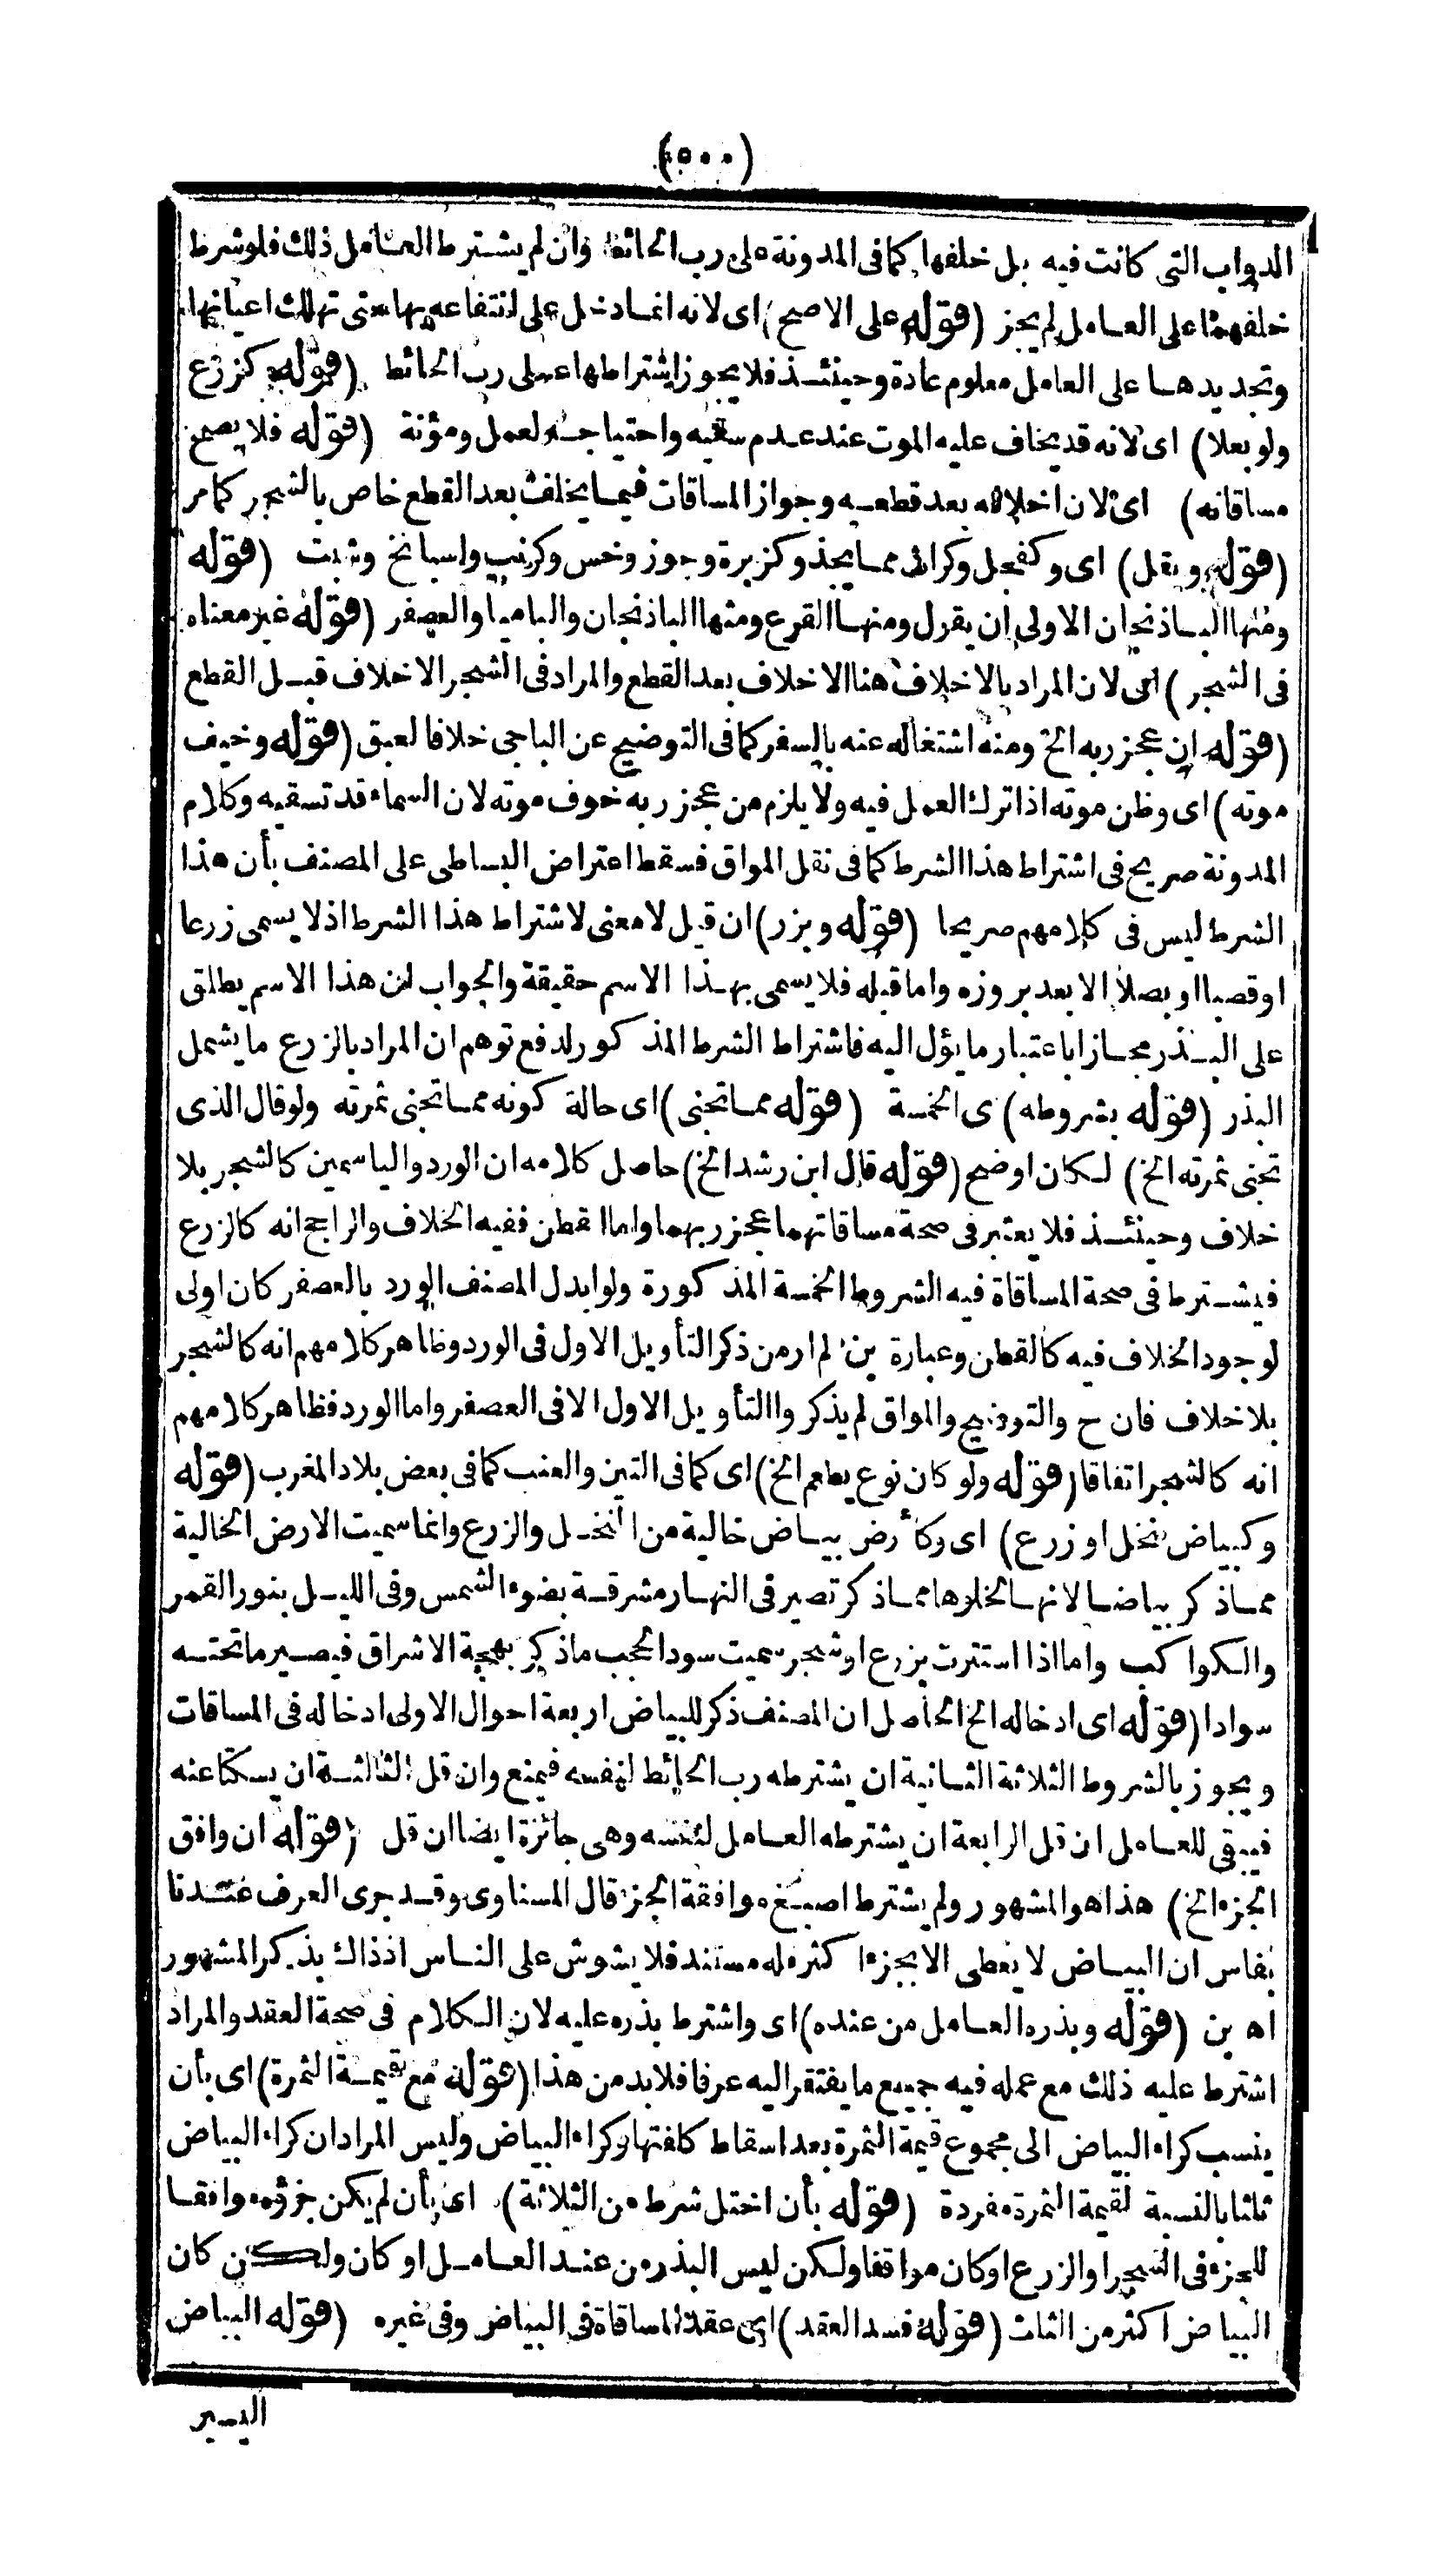 (٥٠٠)
الدواب التى كانت فيه بل خلفها كما فى المدونة على رب الحائط وان لم يشترط العامل ذلك فلو شرط
خلفهما على العامل لم يجز (قوله على الاصح) اى لانه انما دخل على انتفاعه بها حتى تهلك اعيانها
وتجديدها على العامل معلوم عادة وحينئذ فلا يجوز اشتراطها على رب الحائط (قوله كزرع
ولو بعلا) اى لانه قد يخاف عليه الموت عند عدم سقيه واحتياجه لعمل ومؤنة (قوله فلا يصح
مساقاته) اى لان اخلافه بعد قطعه وجواز المساقات فيما يخلف بعد القطع خاص بالشجر كما مر
(قوله وبقل) اى وكفجل وكراث مما يجذ وكزبرة وجوز وخس وكرنب واسبانخ وشبت (قوله
ومنها الباذنجان الاولى ان يقول ومنها القرع ومنها الباذنجان والباميا والعصفر (قوله غير معناه
فى الشجر) اى لان المراد بالاخلاف هنا الاخلاف بعد القطع والمراد فى الشجر الاخلاف قبل القطع
(قوله ان عجز ربه الخ ومنه اشتغاله عنه بالسفر كما فى التوضيح عن الباجى خلافا لعبق (قوله وخيف
موته) اى وظن موته اذا ترك العمل فيه ولا يلزم من عجز ربه خوف موته لان السماء قد تسقيه وكلام
المدونة صريح فى اشتراط هذا الشرط كما فى نقل المواق فسقط اعتراض البساطى على المصنف بأن هذا
الشرط ليس فى كلامهم صريحا (قوله وبزر) ان قيل لا معنى لاشتراط هذا الشرط اذ لا يسمى زرعا
او قصبا او بصلا الا بعد بروزه واما قبله فلا يسمى بهذا الاسم حقيقة والجواب ان هذا الاسم يطلق
على البذر مجازا باعتبار ما يؤل اليه فاشتراط الشرط المذكور لدفع توهم ان المراد بالزرع ما يشمل
البذر (قوله بشروطه) ى الخمسة (قوله مما تجنى) اى حالة كونه مما تجنى ثمرته ولو قال الذى
تجنى ثمرته الخ) لكان اوضح (قوله قال ابن رشد الخ) حاصل كلامه ان الورد والياسمين كالشجر بلا
خلاف وحينئذ فلا يعتبر فى صحة مساقاتهما عجز ربهما واما القطن ففيه الخلاف والراجح انه كالزرع
فيشترط فى صحة المساقاة فيه الشروط الخمسة المذكورة ولو ابدل المصنف الورد بالعصفر كان اولى
لوجود الخلاف فيه كالقطن وعبارة بن لم ار من ذكر التأويل الاول فى الورد وظاهر كلامهم انه كالشجر
بلا خلاف فان ح والتوضيح والمواق لم يذكروا التأويل الاول الا فى العصفر واما الورد فظاهر كلامهم
انه كالشجر اتفاقا (قوله ولو كان نوع يطعم الخ) اى كما فى التين والعنب كما فى بعض بلاد المغرب (قوله
وكبياض نخل او زرع) اى وكأرض بياض خالية من النخل والزرع وانما سميت الارض الخالية
مما ذكر بياضا لانها لخلوها مما ذكر تصير فى النهار مشرقة بضوء الشمس وفى الليل بنور القمر
والكواكب واما اذا استترت بزرع او شجر سميت سودا لحجب ما ذكر بهجة الاشراق فيصير ما تحته
سوادا (قوله اى ادخاله الخ الحاصل ان المصنف ذكر للبياض اربعة احوال الاولى ادخاله فى المساقات
ويجوز بالشروط الثلاثة الثانية ان يشترطه رب الحائط لنفسه فيمنع وان قل الثالثة ان يسكتا عنه
فيبقى للعامل ان قل الرابعة ان يشترطه العامل لنفسه وهى جائزة ايضا ان قل (قوله ان وافق
الجزء الخ) هذا هو المشهور ولم يشترط اصبغ موافقة الجزء قال المسناوى وقد جرى العرف عندنا
بفاس ان البياض لا يعطى الا بجزء اكثر وله مستند فلا يشوش على الناس اذ ذاك بذكر المشهور
اه بن (قوله وبذره العامل من عنده) اى واشترط بذره عليه لان الكلام فى صحة العقد والمراد
اشترط عليه ذلك مع عمله فيه جميع ما يفتقر اليه عرفا فلابد من هذا (قوله مع قيمة الثمرة) اى بأن
ينسب كراء البياض الى مجموع قيمة الثمرة بعد اسقاط كلفتها وكراء البياض وليس المراد ان كراء البياض
ثلثا بالنسبة لقيمة الثمرة مفردة (قوله بأن اختل شرط من الثلاثة) اى بأن لم يكن جزؤه موافقا
للجزء فى الشجر او الزرع او كان موافقا ولكن ليس البذر من عند العامل او كان ولكن كان
البياض اكثر من الثلث (قوله فسد العقد) اى عقد المساقاة فى البياض وفى غيره (قوله البياض
اليسير